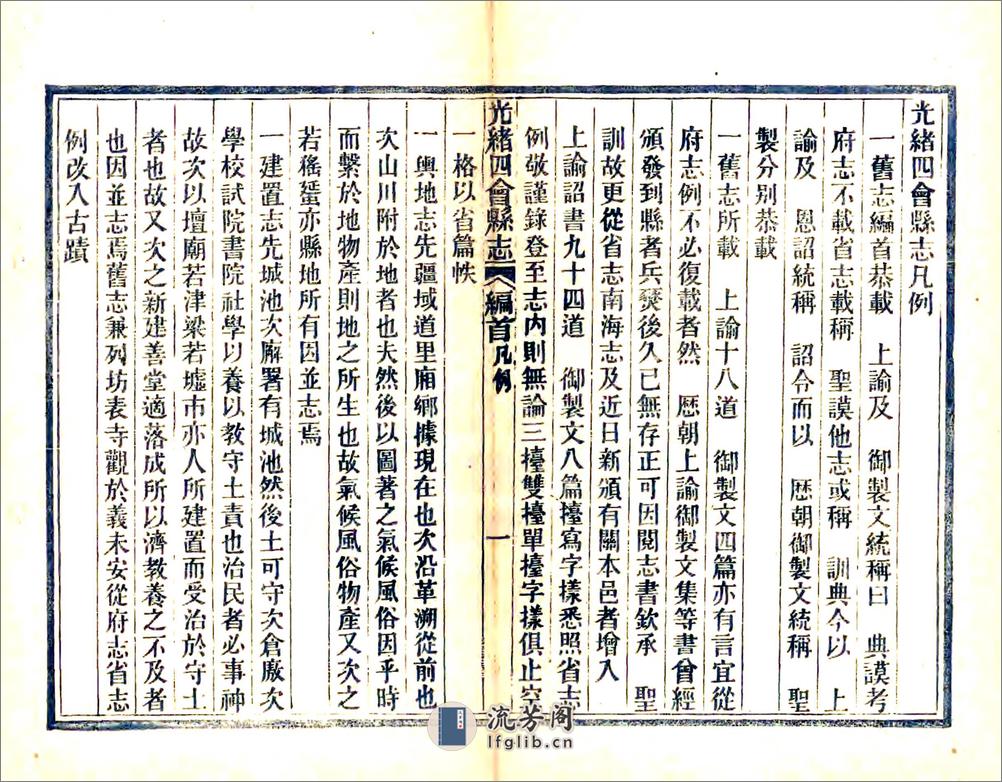 光緒四會縣志凡例
一舊志編首恭載　上諭及　御製文統稱曰　典謨考
府志不載省志載稱　聖謨他志或稱　訓典今以　上
諭及　恩詔統稱　詔令而以　歷朝御製文統稱　聖
製分別恭載
一舊志所載　上諭十八道　御製文四篇亦有言宜從
府志例不必復載者然　歷朝上諭御製文集等書曾經
頒發到縣者兵燹後久已無存正可因閱志書欽承　聖
訓故更從省志南海志及近日新頒有關本邑者增入
上諭詔書九十四道　御製文八篇擡寫字樣悉照省志
例敬謹錄登至志內則無論三擡雙擡單擡字樣俱止空
光緒四會縣志　編首凡例　一
一格以省篇帙
一輿地志先疆域道里廂鄉據現在也次沿革溯從前也
次山川附於地者也夫然後以圖著之氣候風俗因乎時
而繫於地物產則地之所生也故氣候風俗物產又次之
若猺蜑亦縣地所有因並志焉
一建置志先城池次廨署有城池然後土可守次倉廒次
學校試院書院社學以養以教守土責也治民者必事神
故次以壇廟若津梁若墟市亦人所建置而受治於守土
者也故又次之新建善堂適落成所以濟教養之不及者
也因並志焉舊志兼列坊表寺觀於義未安從府志省志
例改入古蹟
流芳阁
lfglib.cn